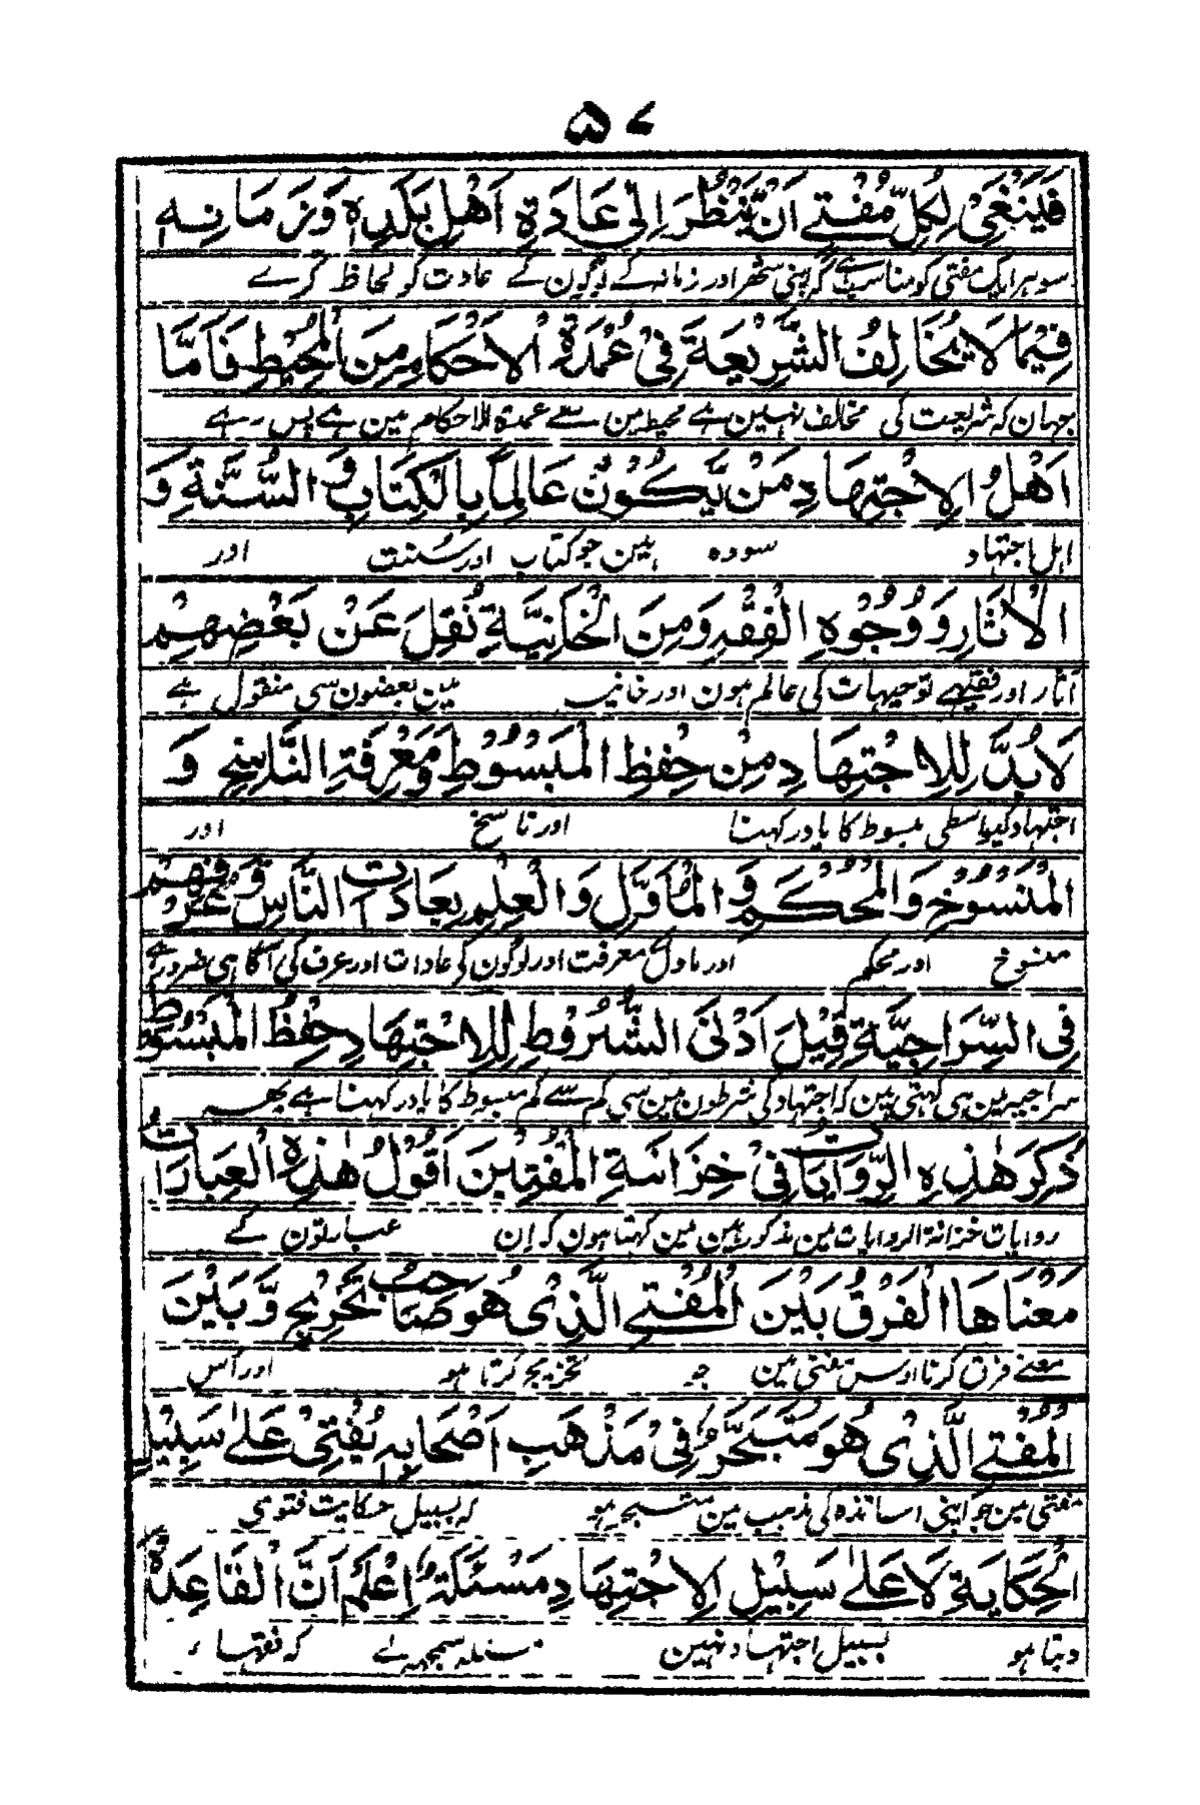 ۵۷
فَيَنْبَغِيْ لِكُلِّ مُفْتِيْ اَنْ يَّنْظُرَ اِلٰى عَادَةِ اَهْلِ بَلَدِهٖ وَزَمَانِهٖ
سو ہر ایک مفتی کو مناسب ہے کہ اپنی شہر اور زمانہ کے لوگون کے عادت کو لحاظ کرے
فِيْمَا لَا يُخَالِفُ الشَّرِيْعَةَ فِيْ عُمْدَةِ الْاَحْكَامِ مِنَ الْمُحِيْطِ فَاَمَّا
جہان کہ شریعت کی مخالف نہین ہے محیط مین سے عمدة الاحکام مین ہے پس رہے
اَهْلُ الْاِجْتِهَادِ مَنْ يَّكُوْنُ عَالِمًا بِالْكِتَابِ وَالسُّنَّةِ وَ
اہل اجتہاد سو وہ ہین جو کتاب اور سُنت اور
الْاٰثَارِ وَوُجُوْهِ الْفِقْهِ وَمِنَ الْخَانِيَّةِ نُقِلَ عَنْ بَعْضِهِمْ
آثار اور فقہے توجیہات کی عالم ہون اور خانیہ مین بعضون سی منقول ہے
لَابُدَّ لِلْاِجْتِهَادِ مِنْ حِفْظِ الْمَبْسُوْطِ وَمَعْرِفَةِ النَّاسِخِ وَ
اجتہاد کیواسطی مبسوط کا یاد رکہنا اور ناسخ اور
الْمَنْسُوْخِ وَالْمُحْكَمِ وَالْمُاَوَّلِ وَالْعِلْمِ بِعَادَاتِ النَّاسِ وَعُرْفِهِمْ
منسوخ اور محکم اور ماول معرفت اور لوگون کی عادات اور عرف کی آگاہی ضرور ہے
فِي السِّرَاجِيَّةِ قِيْلَ اَدْنَى الشُّرُوْطِ لِلْاِجْتِهَادِ حِفْظُ الْمَبْسُوْطِ
سراجیہ مین ہی کہتی ہین کہ اجتہاد کی شرطون مین سی کم سے کم مبسوط کا یاد رکہنا ہے یہہ
ذُكِرَ هٰذِهِ الرِّوَايَاتُ فِيْ خِزَانَةِ الْمُفْتِيْنَ اَقُوْلُ هٰذِهِ الْعِبَارَاتُ
روایات خزانة الروایات مین مذکور ہین مین کہتا ہون کہ اِن عبارتون کے
مَعْنَاهَا الْفَرْقُ بَيْنَ الْمُفْتِي الَّذِيْ هُوَ صَاحِبُ تَخْرِيْجٍ وَّبَيْنَ
معنے فرق کرنا اوس مفتی مین جو تخریج کرتا ہو اور اُس
الْمُفْتِي الَّذِيْ هُوَ مُتَبَحِّرٌ فِيْ مَذْهَبِ اَصْحَابِهٖ يُفْتِيْ عَلٰى سَبِيْلِ
مفتی مین جو اپنی اساتذہ کی مذہب مین متبحر ہو کہ بسبیل حکایت فتوی
الْحِكَايَةِ لَا عَلٰى سَبِيْلِ الْاِجْتِهَادِ مَسْئَلَةٌ اِعْلَمْ اَنَّ الْقَاعِدَةَ
دیتا ہو بسبیل اجتہاد نہین مسئلہ سمجہہ لے کہ فقہاء